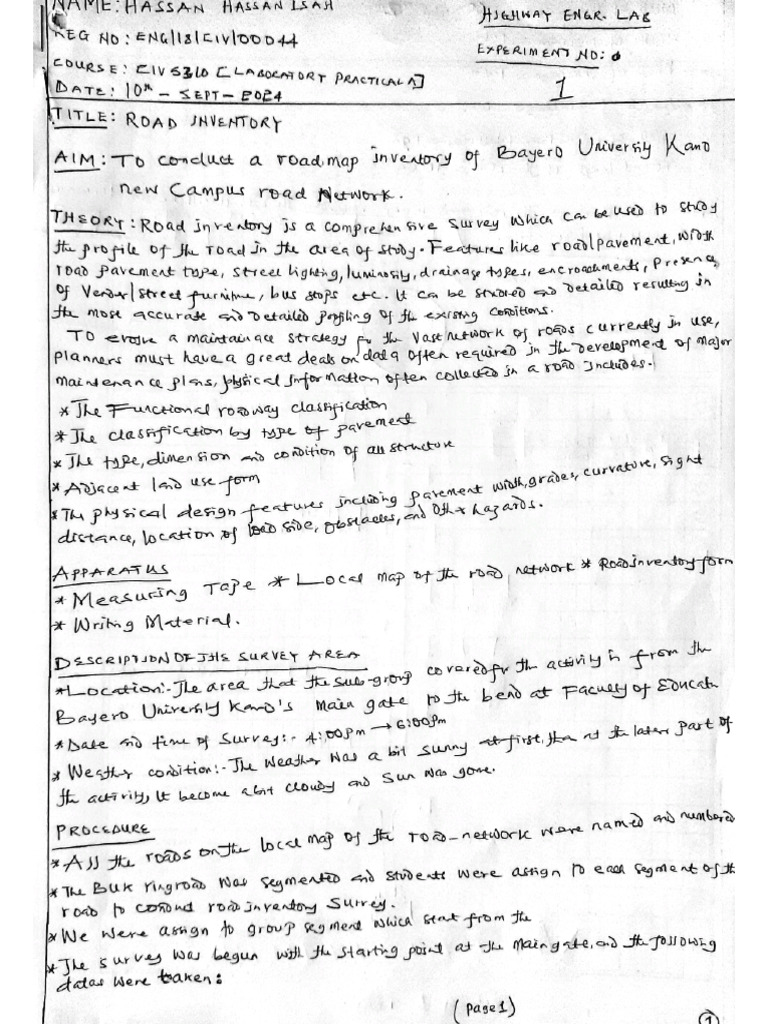 NAME: HASSAN HASSAN ISAH
HIGHWAY ENGR. LAB
REG NO: ENG/18/CIV/00044
EXPERIMENT NO:
COURSE: CIV5310 [LABORATORY PRACTICAL A]
1
DATE: 10th - SEPT - 2024
TITLE: ROAD INVENTORY
AIM: To conduct a roadmap inventory of Bayero University Kano
new Campus road Network.
THEORY: Road inventory is a comprehensive survey which can be used to study
the profile of the road in the area of study. Features like road/pavement, width
road pavement type, street lighting, luminosity, drainage types, encroachments, presence
of Vender/street furniture, bus stops etc. It can be studied and detailed resulting in
the most accurate and detailed profiling of the existing conditions.
To evolve a maintainace strategy for the vast network of roads currently in use,
planners must have a great deals on data often required in the development of major
maintenance plans, physical information often collected in a road includes:
* The Functional roadway classification
* The classification by type of pavement
* The type, dimension and condition of all structure
* Adjacent land use form
* The physical design features including pavement width, grades, curvature, sight
distance, location of load side, obstacles, and other hazards.
APPARATUS
* Measuring Tape * Local map of the road network * Road inventory form
* Writing Material.
DESCRIPTION OF THE SURVEY AREA
* Location:- The area that the sub-group covered for the activity is from the
Bayero University Kano's main gate to the bend at Faculty of Educatn
* Date and time of survey:- 4:00pm → 6:00pm
* Weather condition:- The weather was a bit sunny at first, then at the later part of
the activity, it become a bit cloudy and sun was gone.
PROCEDURE
* All the roads on the local map of the road-network were named and numbered
* The BUK ringroad was segmented and students were assign to each segment of the
road to conduct road inventory survey.
* We were assign to group segment which start from the
* The survey was begun with the starting point at the main gate, and the following
datas were taken:
(page 1)
1